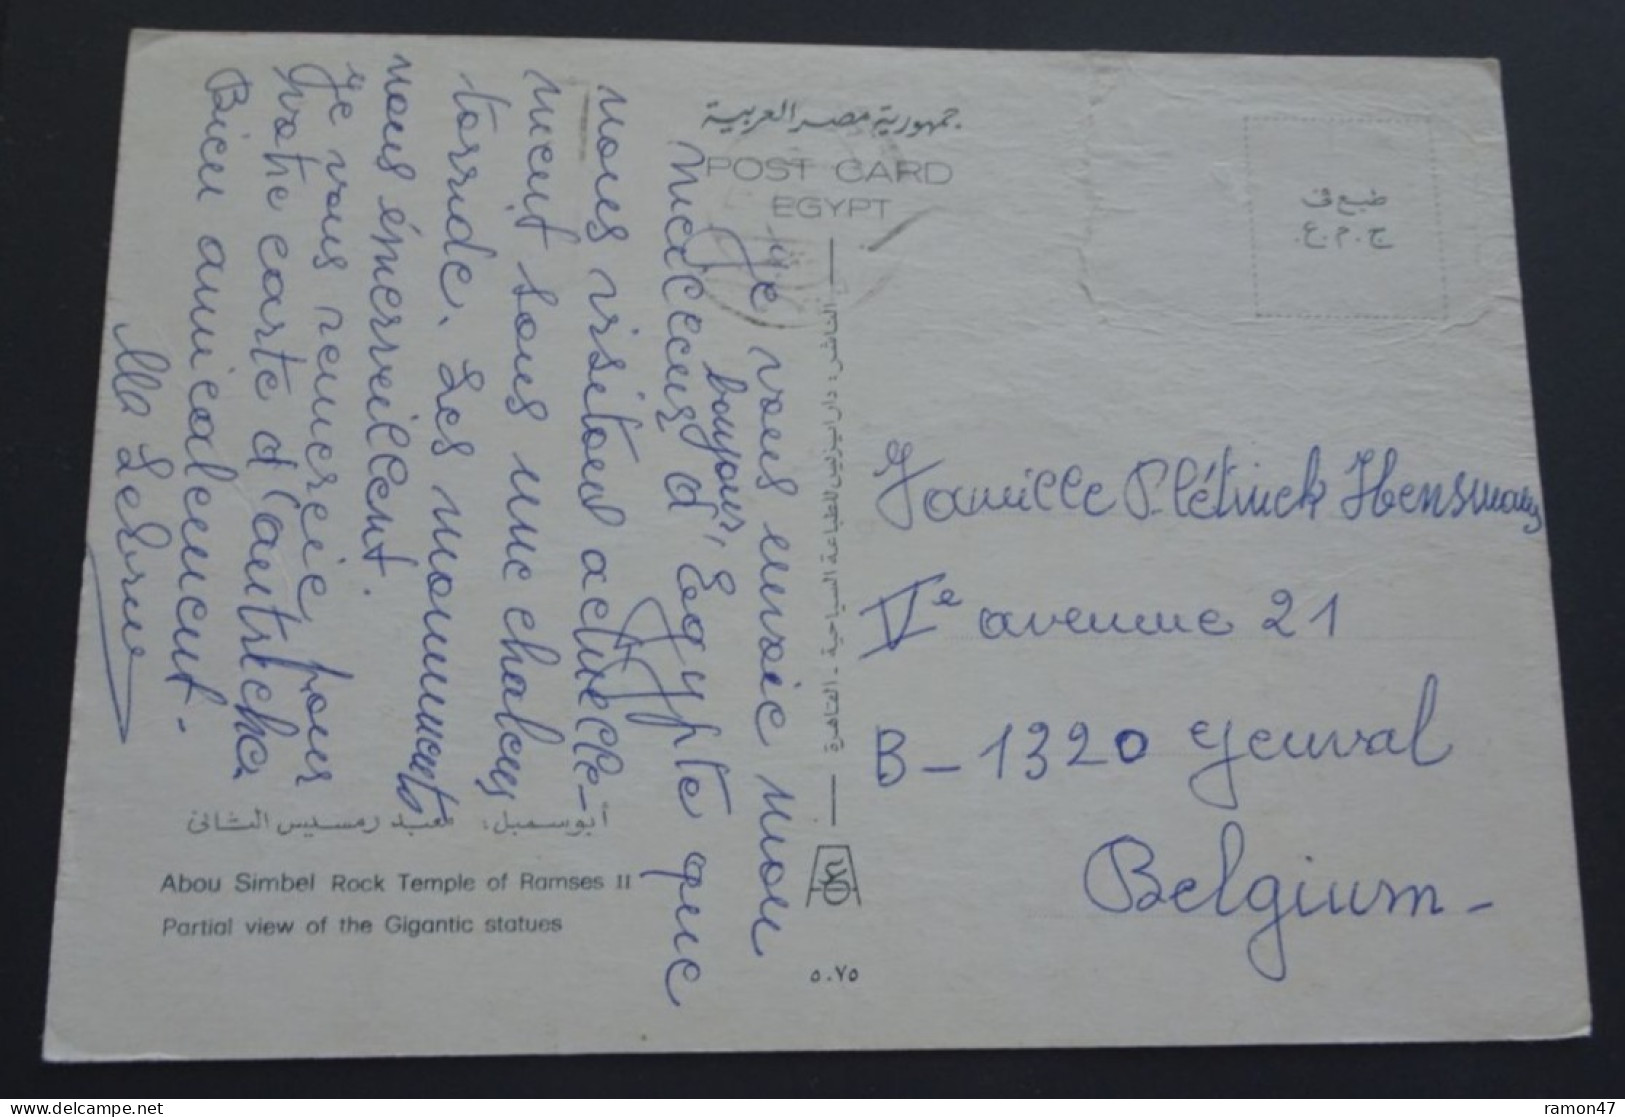 جمهورية مصر العربية
POST CARD
EGYPT
طبع فى
ج.م.ع.
bonjour,
Je vous envoie mon
meilleur d'Egypte que
nous visitons actuelle-
ment sous une chaleur
torride. Les monuments
nous émerveillent.
Je vous remercie pour
votre carte d'autriche
Bien amicalement.
Lebrun
الناشر: دار ايزيس للطباعة السياحية - القاهرة
Famille Plétinck Hensmans
Ve avenue 21
B-1320 Genval
Belgium-
أبو سمبل: معبد رمسيس الثانى
Abou Simbel Rock Temple of Ramses II
Partial view of the Gigantic statues
٥٠٧٥
ramon47